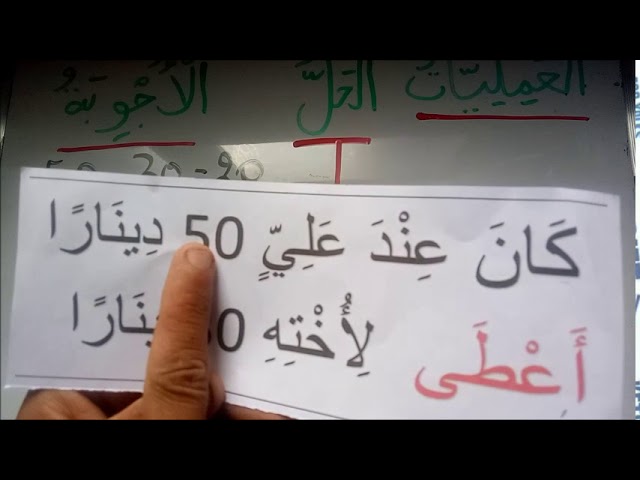 العَمِلِيّاتُ الحَلُّ الأَجْوِبَةُ
كَانَ عِنْدَ عَلِيٍّ 50 دِينَارًا
أَعْطَى لِأُخْتِهِ